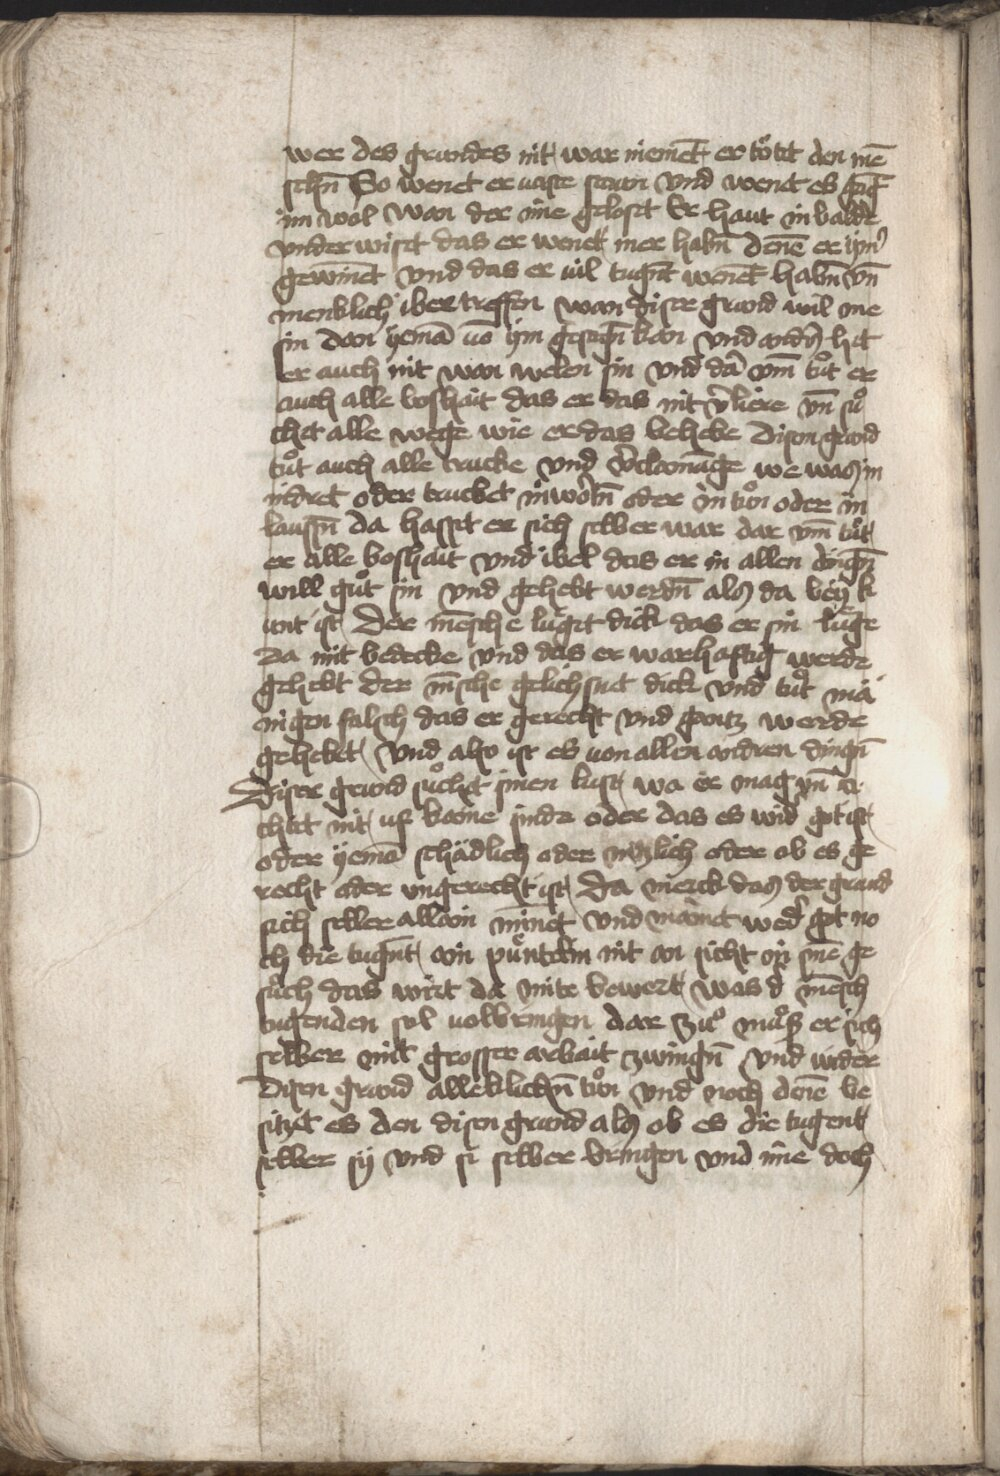 wer des grundes nit war niemet er töttet den mē
schn̄ So wenet er vaste staun vnd wenet es gāg
im wol wan der ime geloset Er haut in balde
vnder wiset das er wenet mer habn̄ denē er ijm̄
gewinnet vnd das er uil tugn̄t wenet habn̄ vn̄
menklich ibertreffen wan diser grund wil me
sin dan yemā vō ijm gesagn̄ kan vnd andˢ hat
er auch nit wan welen sin vnd dā vm̄ tůt er
auch alle boshait das er das nit vˢliere vn̄ sů
chet alle wege wie er das behebe Disen grund
tůt auch alle trucke vnd we was in
indret oder trucket in wortn̄ oder in tůn oder in
laussn̄ da hasset er sich selber war dar vm̄ tůt
er alle boshait vnd ibel das er in allen dingn̄
will gůt sin vnd gehebt werdn̄ als da bey k
unt ist Der mēsche lůget dick das er sin lůge
da mit bedecke vnd das er warhaftig werde
gehebt der mˢsche gelichsnet dick vnd tůt mā
nigen falsch das er gerecht vnd gantz werde
gehebet vnd also ist es von allen andren dingn̄
Diser grund sůchet sinen lust wa er mag vn̄ a
chtet nit uf kaine sinde oder das es widˢ got ist
oder yemā schädlich oder nutzlich oder ob es ge
recht oder ungerecht ist Da merck das der grund
sich selber allain minnet vnd mainet wedˢ got no
ch die tugn̄t ain pünttelin nit an sicht on sinē ge
sůch das wirt da mite bewert was dˢ mēsch
tugenden sol uolbringen dar zů můß er sich
selber mit grosser arbait zwingn̄ vnd wider
Disen grund alleklichn̄ tůn vnd noch denē be
sitzet es den disen grund als ob es die tugent
selber sy vnd si selber bringen vnd ime doch